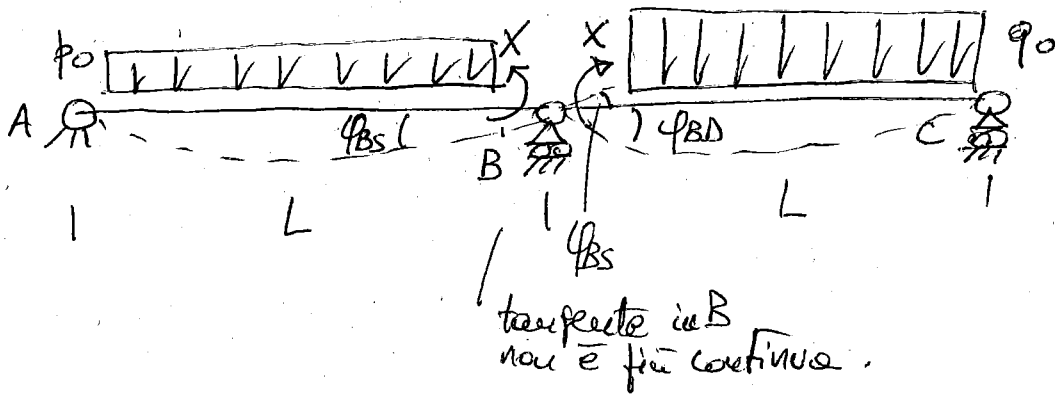 p0 X X q0
A φBS B φBD C
L L
φBS
tangente in B
non è più continua.